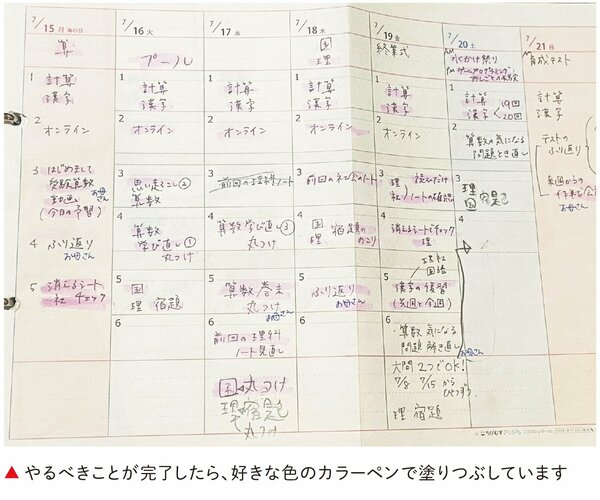 7/15 月 海の日
算
1 計算
漢字
2 オンライン
3 はじめまして
受験算数
お母さん
(今日の予習)
4 ふり返り
お母さん
5 消えるシート
社 チェック
7/16 火
プール
1 計算
漢字
2 オンライン
3 思い起こし②
算数
4 算数
学び直し①
丸つけ
5 国
理 宿題
6
7/17 水
1 計算
漢字
2 オンライン
3 前回の理科ノート
4 算数学び直し③
丸つけ
5 算数巻末
丸つけ
お母さん
6 前回の理科
ノート見直し
国丸つけ
理宿題
丸つけ
7/18 木
国
理
1 計算
漢字
2 オンライン
3 前回の社会のノート
4 国 宿題の
理 のこり
5 ふり返り
お母さん
6
7/19 金
終業式
1 計算
漢字
2 オンライン
3 理 読んだけ
社 ノートの確認
4 消えるシートでチェック
理
理社
国語
5 漢字の復習
(先週と今週)
6 算数 気になる
問題 解き直し
お母さん
六問 2つでOK!
7/8 7/15 から
ひとつずつ
理 宿題
7/20 土
AM
PM ゲームプログラミング
おしごと体験
1 計算
漢字 19回
20回
2 算数の気になる
問題とき直し
3 理
国 宿題
4
7/21 日
育成テスト
計算
漢字
テストの
ふり返り
来週からの
お母さん
▲ やるべきことが完了したら、好きな色のカラーペンで塗りつぶしています